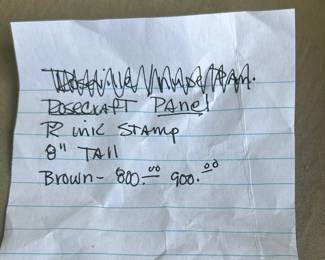 Rosecraft Panel
R ink Stamp
8" Tall
Brown- 800.00 900.00